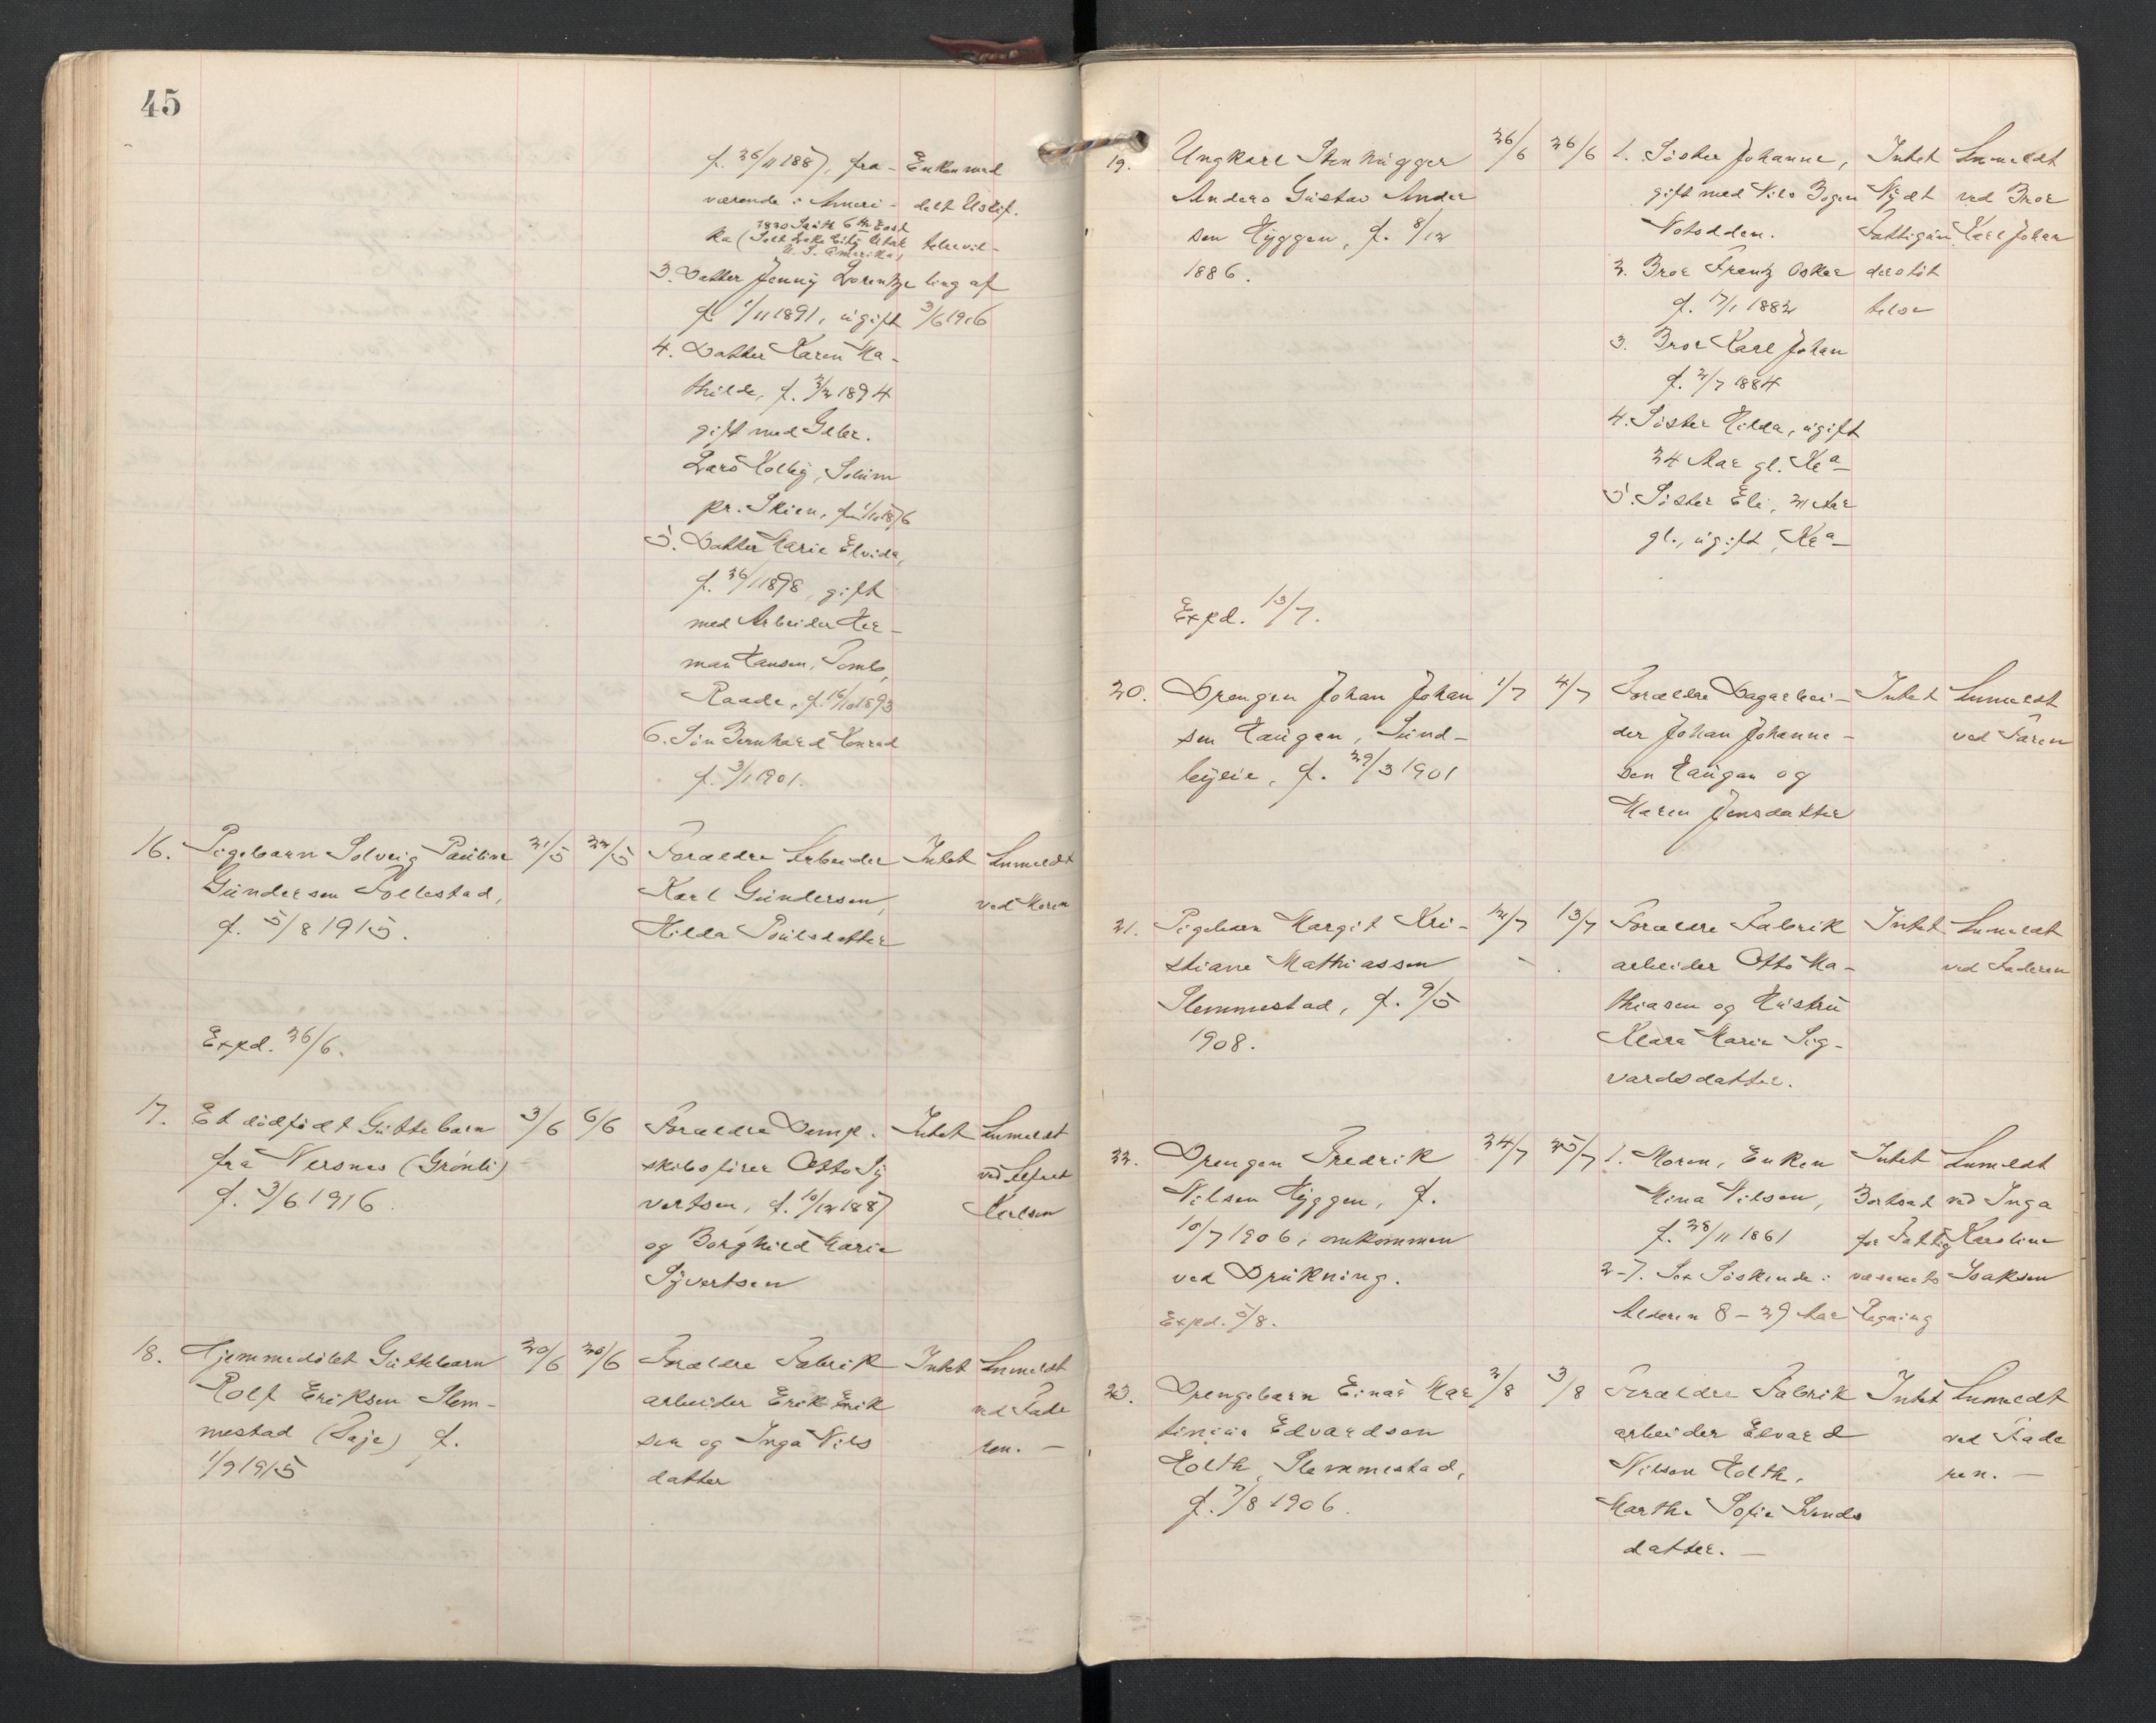 45
f. 26/11 1887, fra-
værende i Ameri-
ka (Salt Lake City Utah
1830 South 6th East
U. S. Amerika)
3. Datter Jenny Lorentze
f. 1/11 1891, ugift
4. Datter Karen Ma-
thilde, f. 2/2 1894
gift med Gdbr.
Lars Kolby, Solum
pr. Skien, f. 1/10 1876
5. Datter Marie Elvida,
f. 26/1 1898, gift
med Arbeider Her-
man Hansen, Tomb,
Raade, f. 16/10 1893
6. Søn Bernhard Konrad
f. 3/1 1901.
Enken med
delt Uskif.
tebevil-
ling af
3/6 1916
16. Pigebarn Solveig Pauline
Gundersen Follestad,
f. 5/8 1915.
21/5 22/5
Forældre Arbeider
Karl Gundersen,
Hilda Poulsdatter
Intet
Anmeldt
ved Moren
Expd. 26/6.
17. Et dødfødt Guttebarn
fra Nersnes (Grønli)
f. 3/6 1916
3/6 6/6
Forældre Damp.
skibsfører Otto Sy
vertsen, f. 10/12 1887
og Borghild Marie
Syvertsen
Intet
Anmeldt
ved Alfred
Karlsen
18. Hjemmedøbt Guttebarn
Rolf Eriksen Slem-
mestad (Paje) f.
1/9 1915
20/6 20/6
Forældre Fabrik
arbeider Erik Erik
sen og Inga Nils
datter
Intet
Anmeldt
ved Fade
ren. –
19. Ungkarl Stenhugger
Anders Gustav Ander
sen Hyggen, f. 8/12
1886.
26/6 26/6
1. Søster Johanne,
gift med Nils Bogen
Notodden.
2. Bror Frantz Oskar
f. 17/1 1882
3. Bror Karl Johan
f. 2/7 1884
4. Søster Hilda, ugift
24 Aar gl. Kr a
5. Søster Eli, 21 Aar
gl., ugift, Kr a
Intet
Nydt
Fattigun
derstøt
telse
Anmeldt
ved Bror
Karl Johan
Expd. 13/7.
20. Drengen Johan Johan
sen Haugen, Sund-
byeie, f. 29/3 1901
1/7 4/7
Forældre Dagarbei-
der Johan Johanne-
sen Haugen og
Maren Jensdatter
Intet
Anmeldt
ved Faren
21. Pigebarn Margit Kri-
stiane Mathiassen
Slemmestad, f. 9/5
1908.
12/7 13/7
Forældre Fabrik
arbeider Otto Ma-
thiasen og Hustru
Klara Marie Sig-
vardsdatter.
Intet
Anmeldt
ved Faderen
22. Drengen Fredrik
Nilsen Hyggen, f.
10/7 1906, omkommen
ved Drukning.
Expd. 5/8.
24/7 25/7
1. Moren, Enken
Mina Nilsen,
f. 28/11 1861
2-7. Sex Søskende i
Alderen 8 – 29 Aar
Intet
Bortsat
for Fattig
væsenets
Regning
Anmeldt
ved Inga
Karoline
Isaksen
23. Drengebarn Einar Mar
tinius Edvardsen
Holth, Slemmestad,
f. 7/8 1906.
2/8 3/8
Forældre Fabrik
arbeider Edvard
Nilsen Holth,
Marthe Sofie Svends
datter. –
Intet
Anmeldt
ved Fade
ren. –